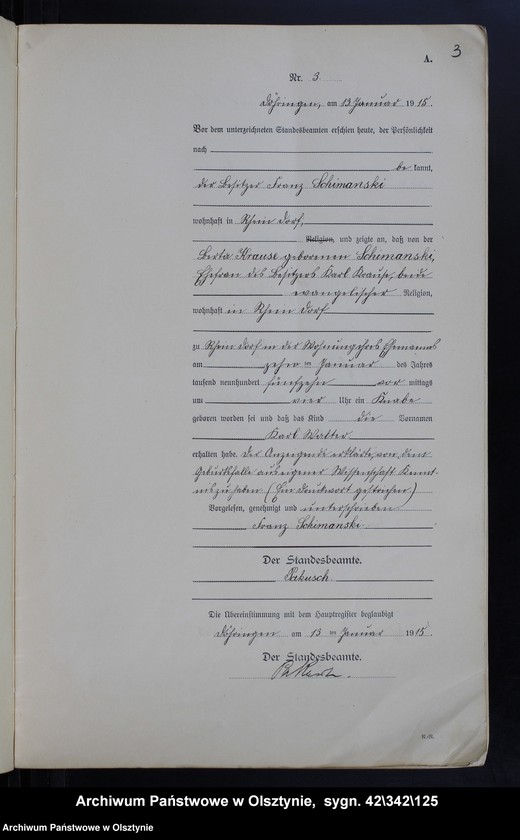 3
A.
Nr. 3
Döhringen, am 13 Januar 1915.
Vor dem unterzeichneten Standesbeamten erschien heute, der Persönlichkeit
nach
be kannt,
der Besitzer Franz Schimanski
wohnhaft in Rhein dorf,
Religion, und zeigte an, daß von der
Berta Krause geborenen Schimanski,
Ehefrau des Besitzers Karl Krause, beide
evangelischer Religion,
wohnhaft in Rhein dorf
zu Rhein dorf in der Wohnung ihres Ehemannes
am zehn ten Januar des Jahres
tausend neunhundert fünfzehn vor mittags
um vier Uhr ein Knabe
geboren worden sei und daß das Kind die Vornamen
Karl Walter
erhalten habe. Der Anzeigende erklärte, von dem
Geburtsfalle aus eigener Wissenschaft Kennt-
nis zu haben (Ein Druckwort gestrichen)
Vorgelesen, genehmigt und unterschrieben
Franz Schimanski
Der Standesbeamte.
Pakusch
Die Übereinstimmung mit dem Hauptregister beglaubigt
Döhringen am 13 ten Januar 1915.
Der Standesbeamte.
Archiwum Państwowe w Olsztynie, sygn. 42\342\125
Archiwum Państwowe w Olsztynie